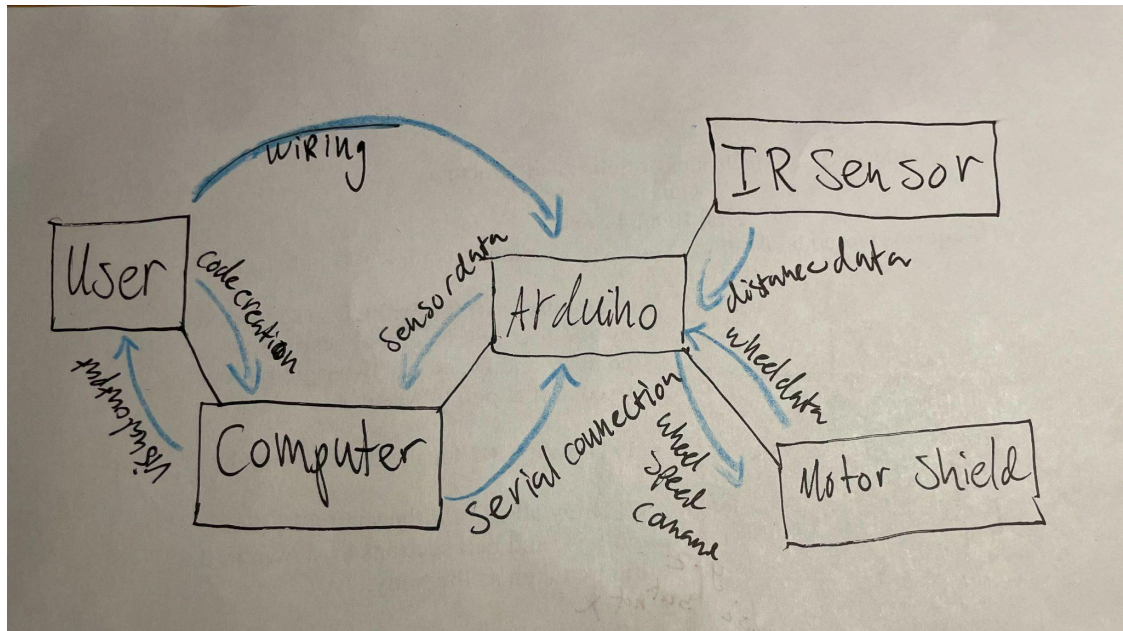 wiring
IR Sensor
User
code creation
sensor data
Arduino
distance data
wheel data
visual output
Computer
serial connection
wheel
speed
Motor Shield